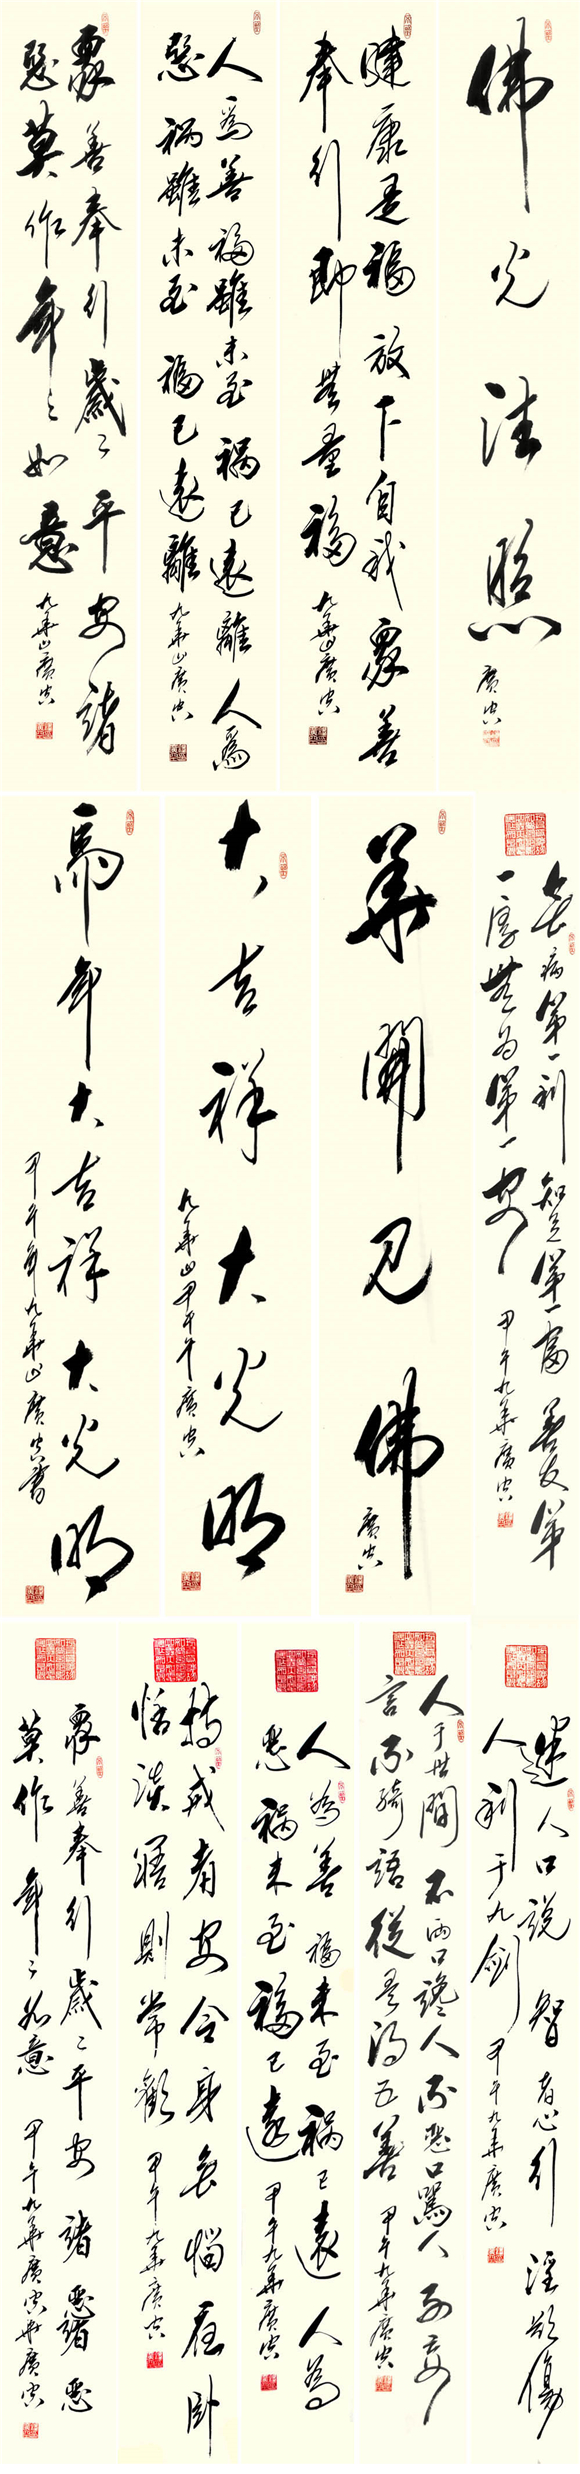 佛光注照
廣
健康是福放下自我眾善
奉行即無量福
九華山廣
人為善福雖未至禍已遠離人為
惡禍雖未至福已遠離
九華山廣
眾善奉行歲々平安諸
惡莫作年々如意
九華山廣
無病第一利知足第一富善友第
一厚無為第一安
甲午九華廣
華開見佛
廣
大吉祥大光明
九華山甲午年廣
馬年大吉祥大光明
甲午年九華山廣書
迷人口說智者心行淫欲傷
人利于九劍
甲午九華廣
人于世間不兩口讒人不惡口罵人不妄
言不綺語從是得五善
甲午九華廣
人為善福未至禍已遠人為
惡禍未至福已遠
甲午九華廣
持戒者安令身無惱夜臥
恬淡寤則常歡
甲午九華廣
眾善奉行歲々平安諸惡諸惡
莫作年々如意
甲午九華廣